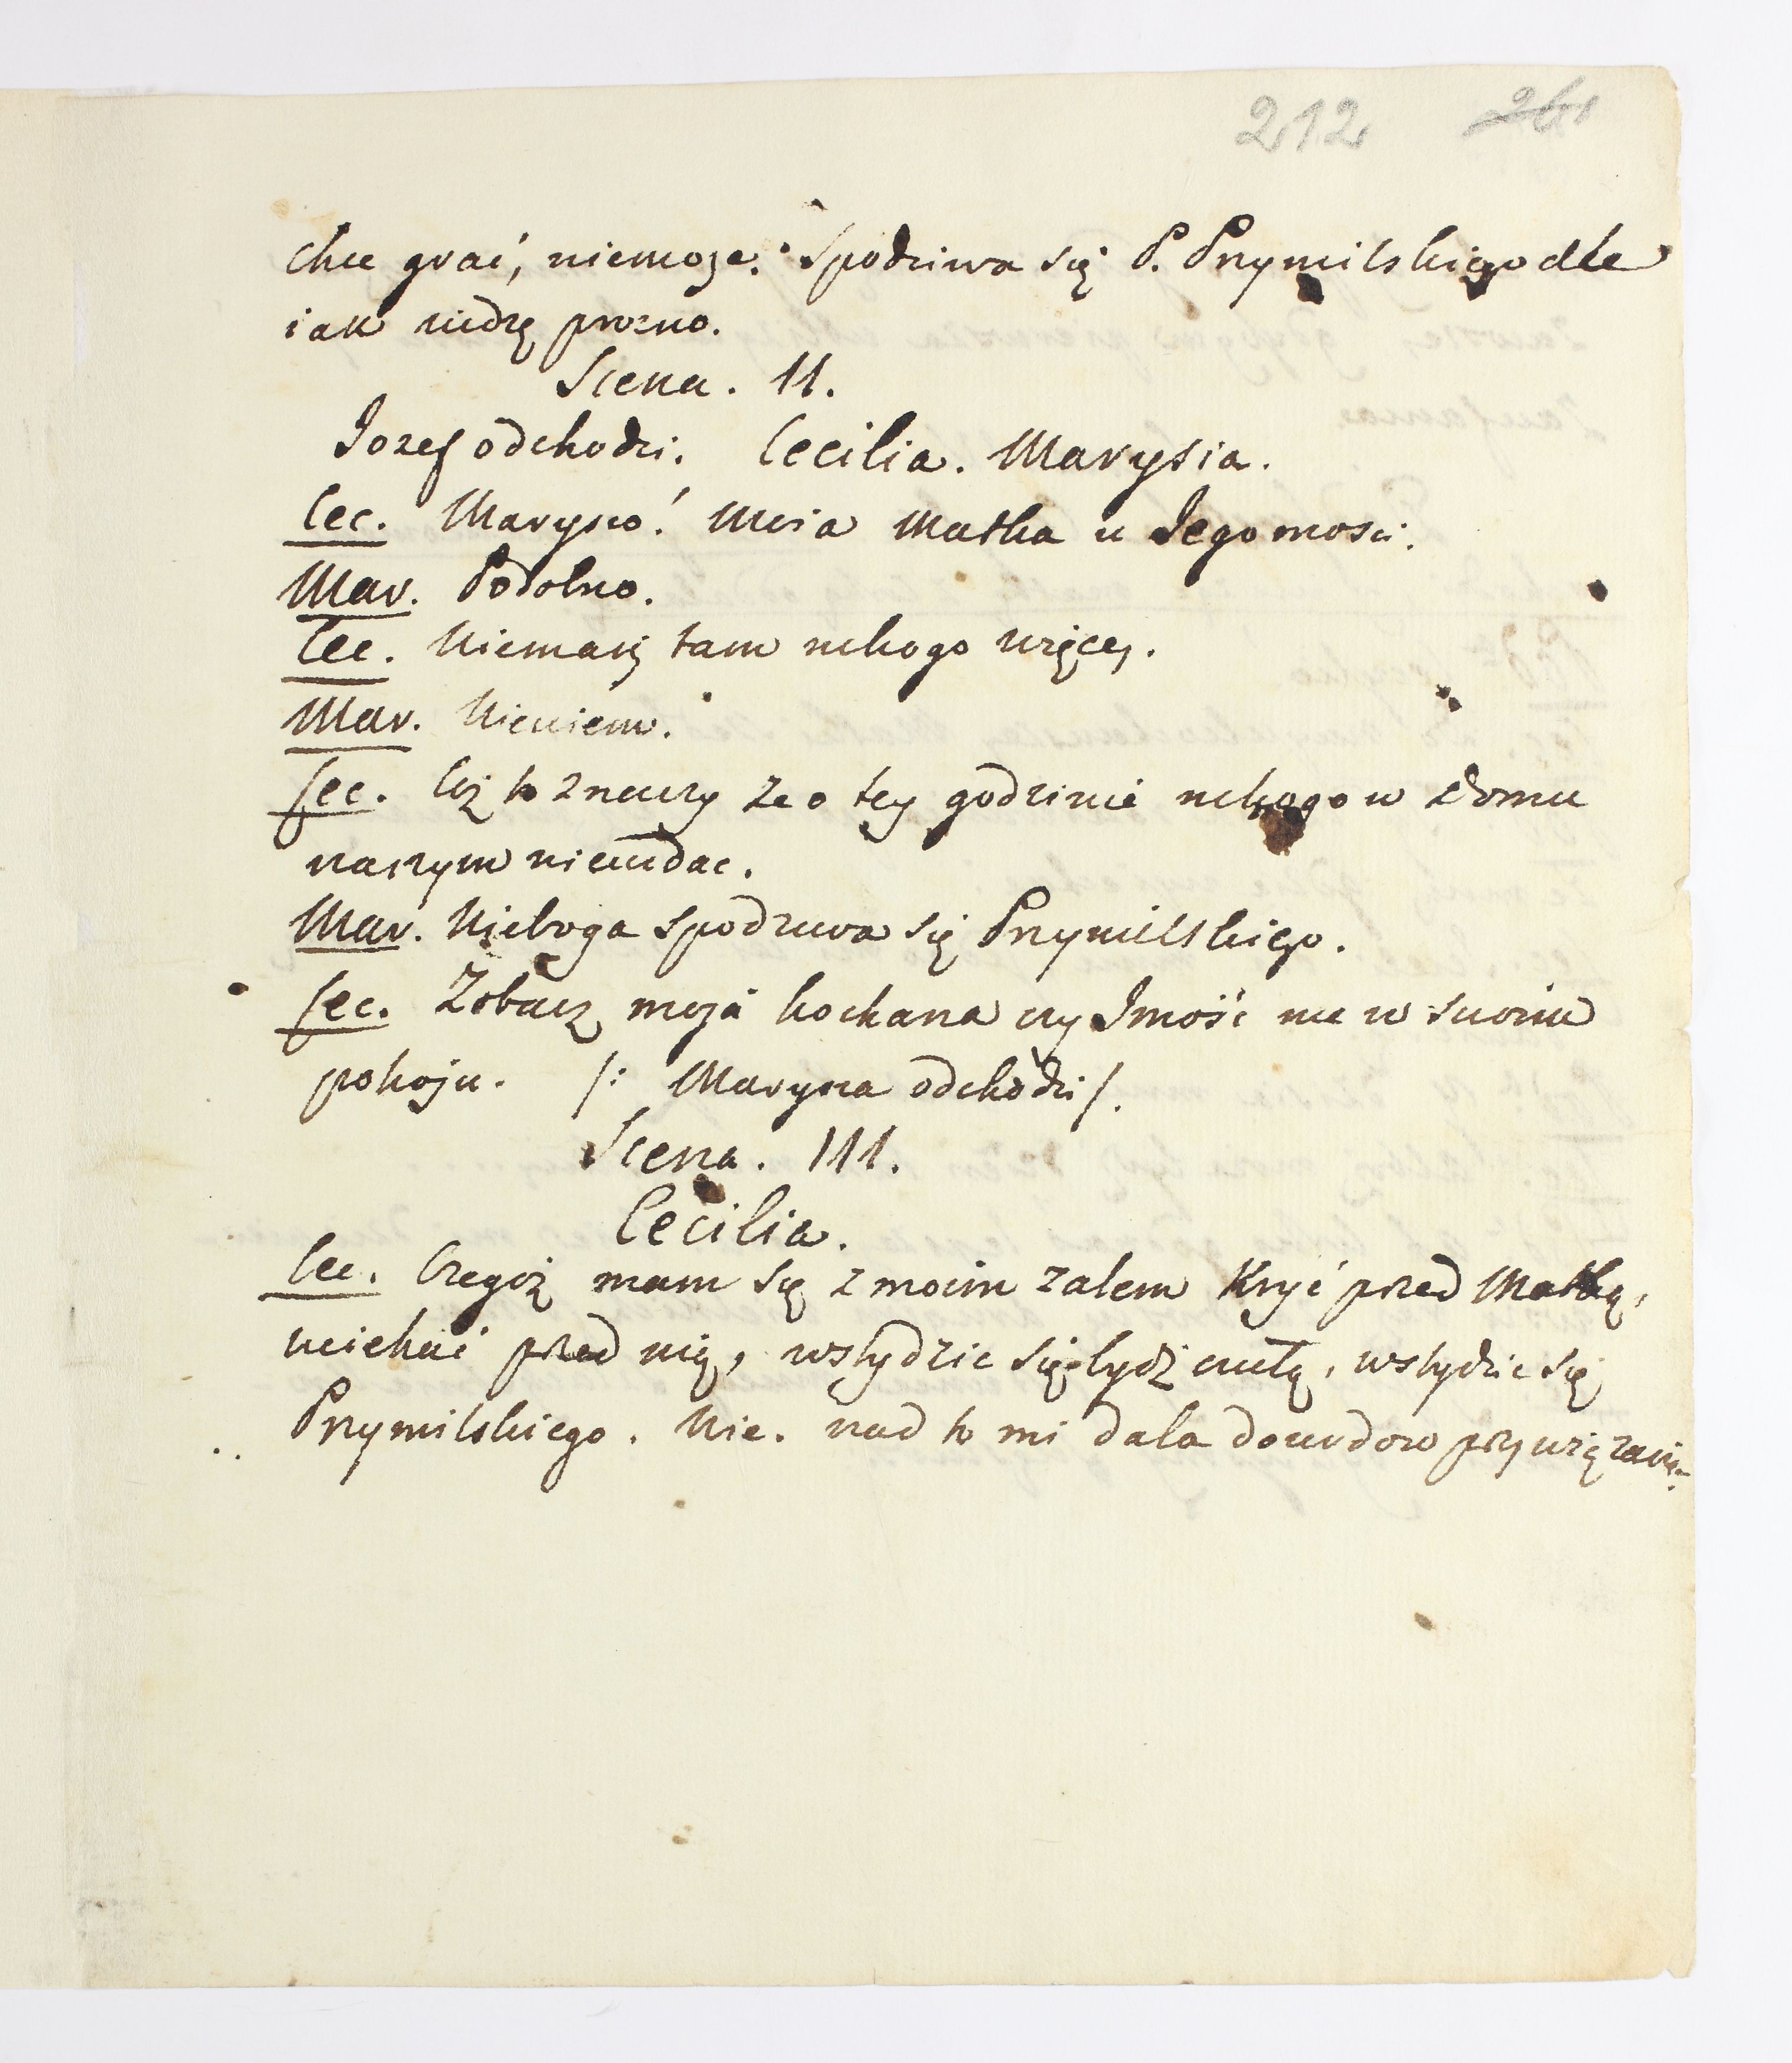 212 261
chce grać, niemoze. Spodziwa się P. Przymilskiego ale
iak widzę prozno.
Scena. II.
Iozef odchodzi. Cecilia. Marysia.
Cec. Marysio! Moia Matka u Iegomosci.
Mar. Podobno.
Cec. Niemasz tam nikogo więcej.
Mar. Niewiem.
Cec. Coż to znaczy ze o tey godzinie nikogo w domu
naszym niewidac.
Mar. Nieboga spodziewa się Przymilskiego.
Cec. Zobacz moja kochana czy Imość nie w swoim
pokoju. /: Marysia odchodzi /.
Scena. III.
Cecilia.
Cec. Czegoż mam się z moim zalem Kryć przed Matką,
uciekać przed nią, wstydzic się bydź czułą, wstydzic się
Przymilskiego. Nie. nad to mi dala dowodow przywiązania